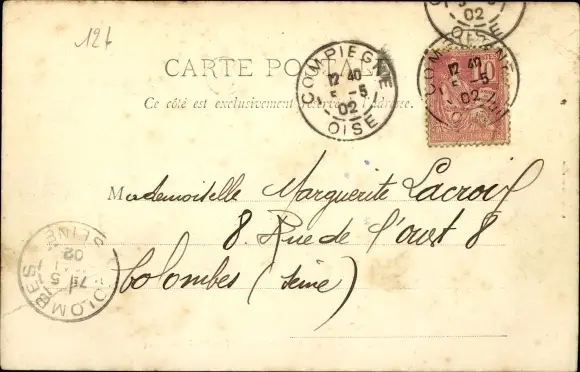 12t
CARTE POSTALE
Ce côté est exclusivement réservé à l'adresse.
COMPIEGNE
12 40
5 -5
02
OISE
COMPIEGNE
12 40
5 -5
02
OISE
02
OISE
10
Mademoiselle Marguerite Lacroix
8. Rue de l'ouest 8
Colombes (Seine)
COLOMBES
5
02
SEINE